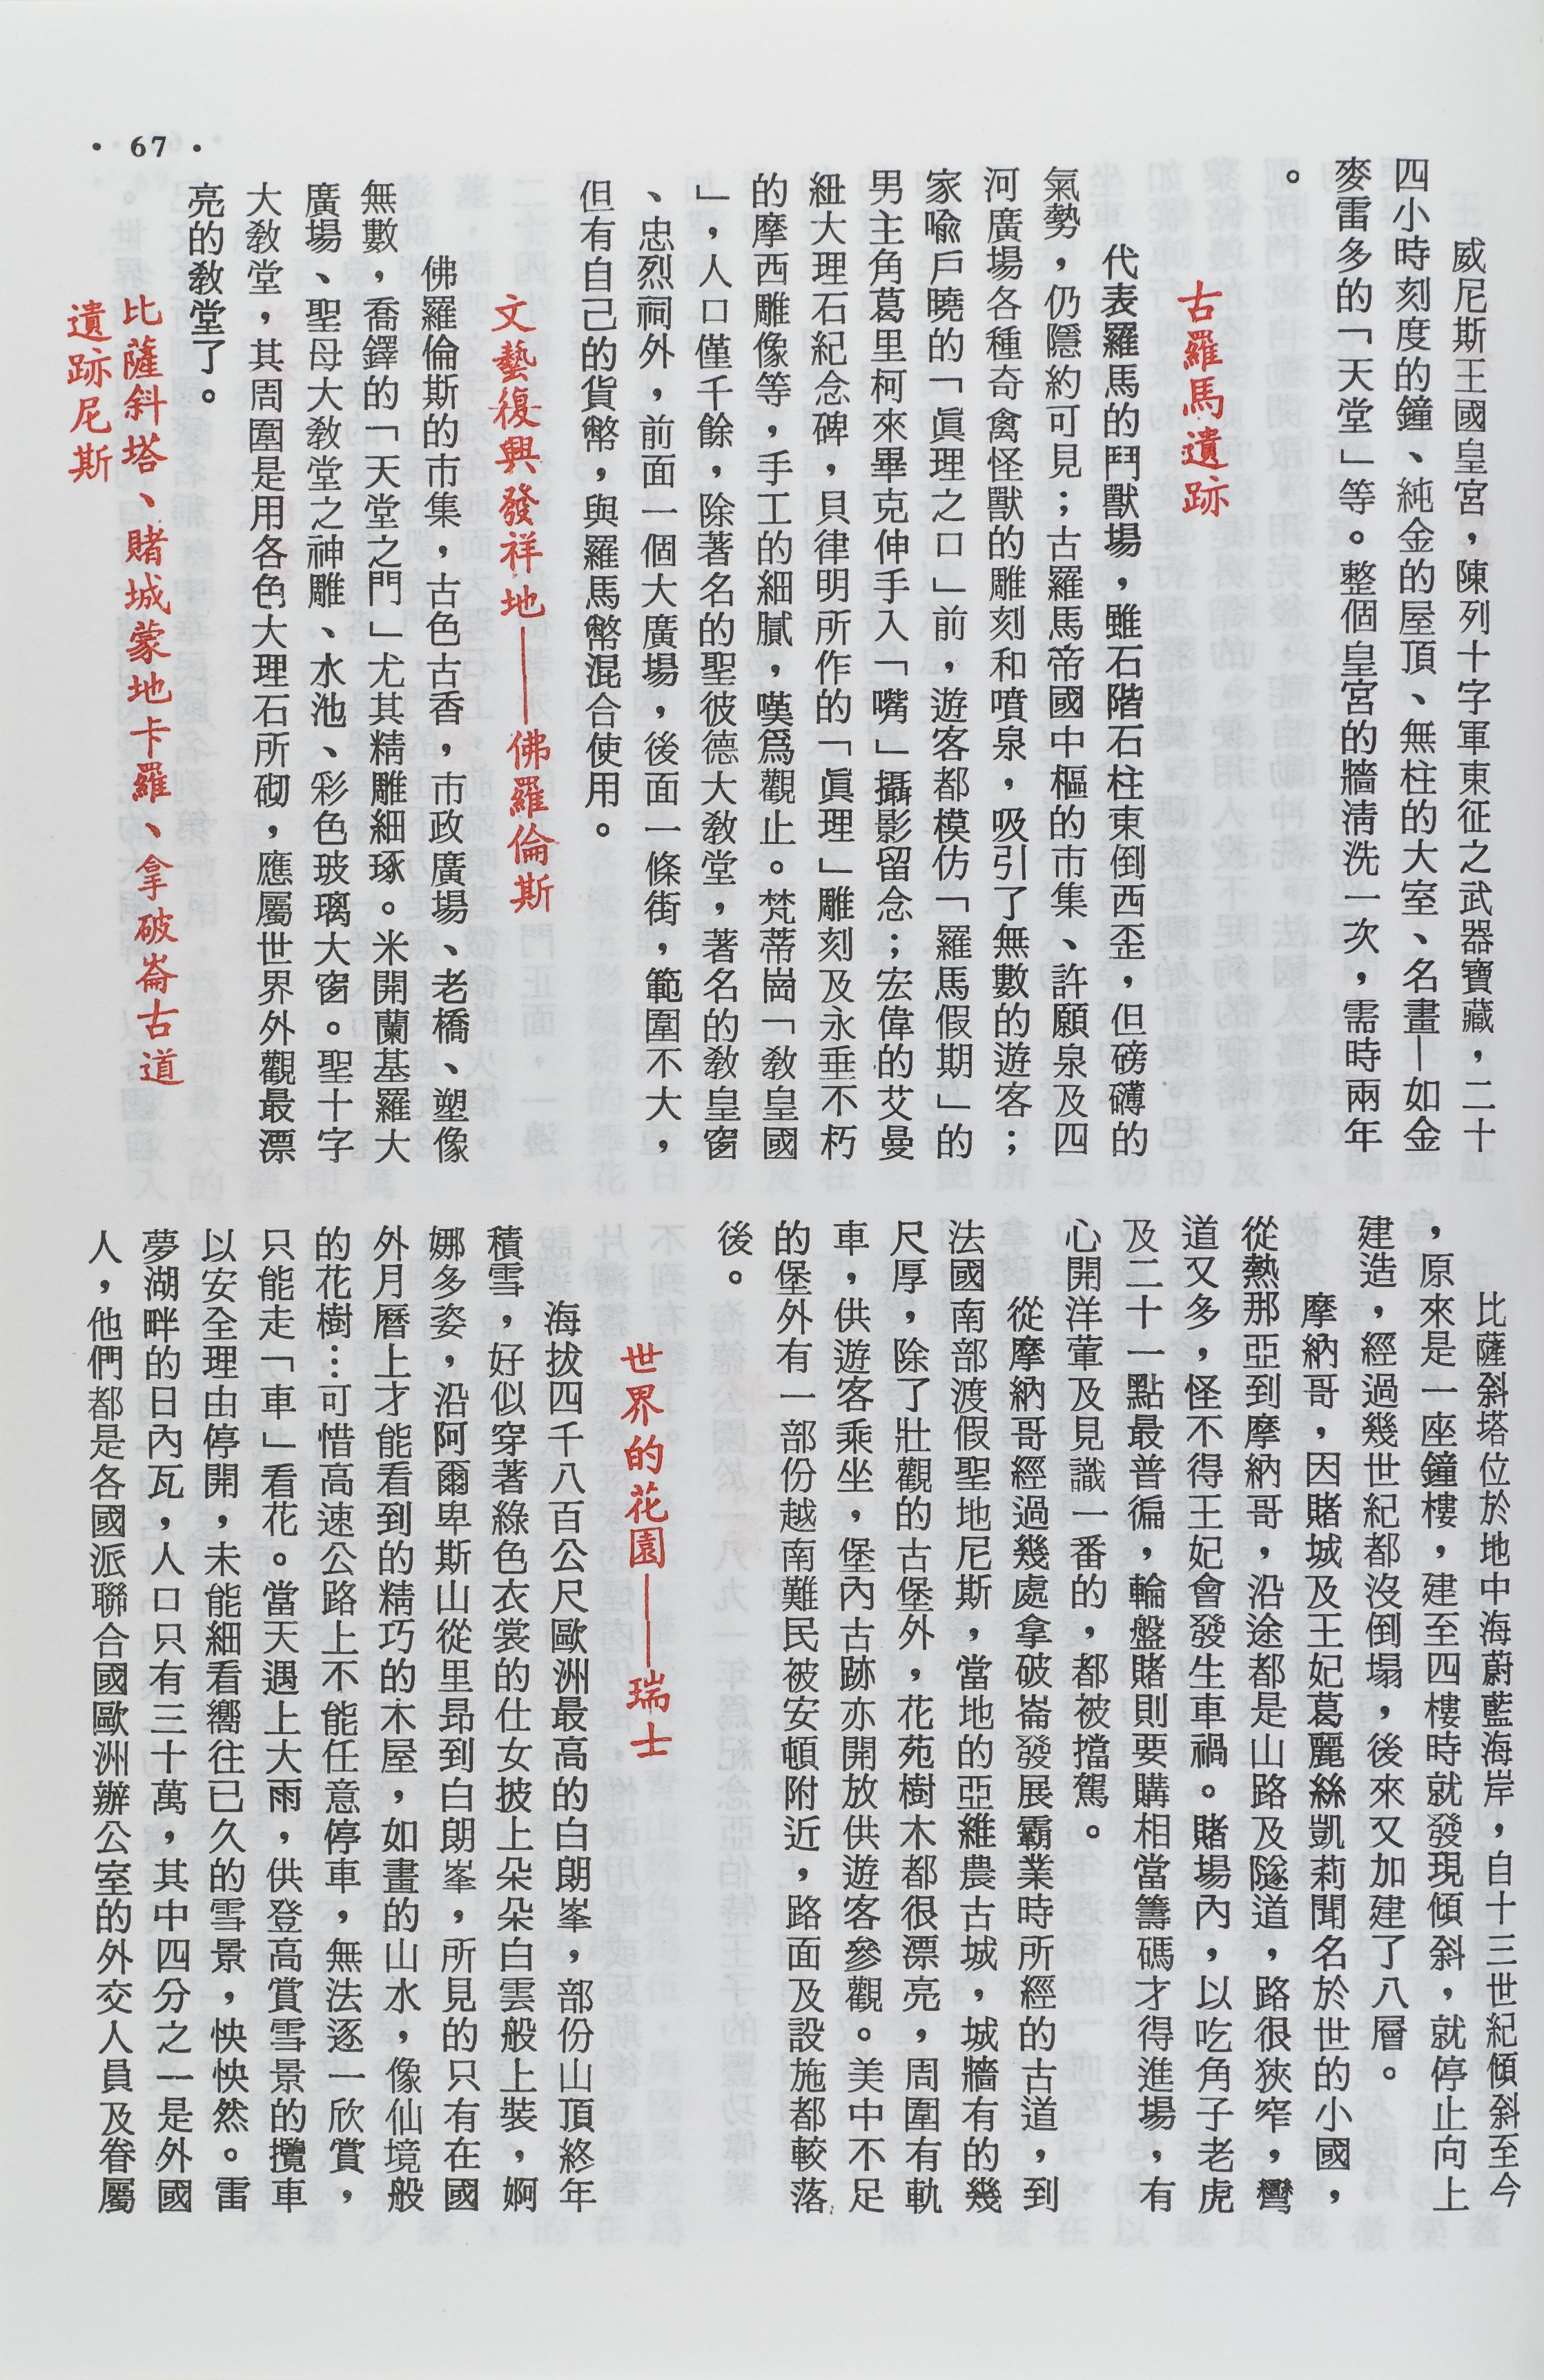 威尼斯王國皇宮，陳列十字軍東征之武器寶藏，二十
四小時刻度的鐘、純金的屋頂、無柱的大室、名畫—如金
麥雷多的「天堂」等。整個皇宮的牆淸洗一次，需時兩年
。
古羅馬遺跡
代表羅馬的鬥獸場，雖石階石柱東倒西歪，但磅礴的
氣勢，仍隱約可見；古羅馬帝國中樞的市集、許願泉及四
河廣場各種奇禽怪獸的雕刻和噴泉，吸引了無數的遊客；
家喩戶曉的「眞理之口」前，遊客都模仿「羅馬假期」的
男主角葛里柯來畢克伸手入「嘴」攝影留念；宏偉的艾曼
紐大理石紀念碑，貝律明所作的「眞理」雕刻及永垂不朽
的摩西雕像等，手工的細膩，嘆爲觀止。梵蒂崗「敎皇國
」，人口僅千餘，除著名的聖彼德大敎堂，著名的敎皇窗
、忠烈祠外，前面一個大廣場，後面一條街，範圍不大，
但有自己的貨幣，與羅馬幣混合使用。
文藝復興發祥地——佛羅倫斯
佛羅倫斯的市集，古色古香，市政廣場、老橋、塑像
無數，喬鐸的「天堂之門」尤其精雕細琢。米開蘭基羅大
廣場、聖母大敎堂之神雕、水池、彩色玻璃大窗。聖十字
大敎堂，其周圍是用各色大理石所砌，應屬世界外觀最漂
亮的敎堂了。
比薩斜塔、賭城蒙地卡羅、拿破崙古道
遺跡尼斯
比薩斜塔位於地中海蔚藍海岸，自十三世紀傾斜至今
，原來是一座鐘樓，建至四樓時就發現傾斜，就停止向上
建造，經過幾世紀都沒倒塌，後來又加建了八層。
摩納哥，因賭城及王妃葛麗絲凱莉聞名於世的小國，
從熱那亞到摩納哥，沿途都是山路及隧道，路很狹窄，彎
道又多，怪不得王妃會發生車禍。賭場內，以吃角子老虎
及二十一點最普徧，輪盤賭則要購相當籌碼才得進場，有
心開洋葷及見識一番的，都被擋駕。
從摩納哥經過幾處拿破崙發展霸業時所經的古道，到
法國南部渡假聖地尼斯，當地的亞維農古城，城牆有的幾
尺厚，除了壯觀的古堡外，花苑樹木都很漂亮，周圍有軌
車，供遊客乘坐，堡內古跡亦開放供遊客參觀。美中不足
的堡外有一部份越南難民被安頓附近，路面及設施都較落
後。
世界的花園——瑞士
海拔四千八百公尺歐洲最高的白朗峯，部份山頂終年
積雪，好似穿著綠色衣裳的仕女披上朵朵白雲般上裝，婀
娜多姿，沿阿爾卑斯山從里昂到白朗峯，所見的只有在國
外月曆上才能看到的精巧的木屋，如畫的山水，像仙境般
的花樹…可惜高速公路上不能任意停車，無法逐一欣賞，
只能走「車」看花。當天遇上大雨，供登高賞雪景的纜車
以安全理由停開，未能細看嚮往已久的雪景，怏怏然。雷
夢湖畔的日內瓦，人口只有三十萬，其中四分之一是外國
人，他們都是各國派聯合國歐洲辦公室的外交人員及眷屬
• 67 •